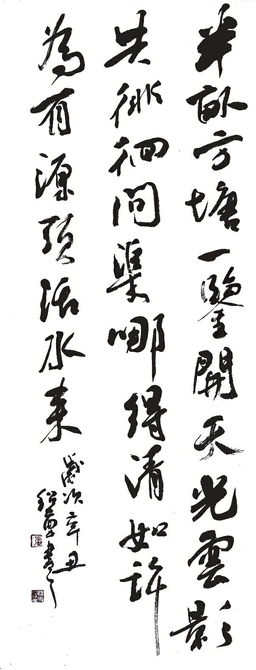 半畝方塘一鑒開天光雲影
共徘徊問渠哪得清如許
為有源頭活水來
歲次辛丑
書